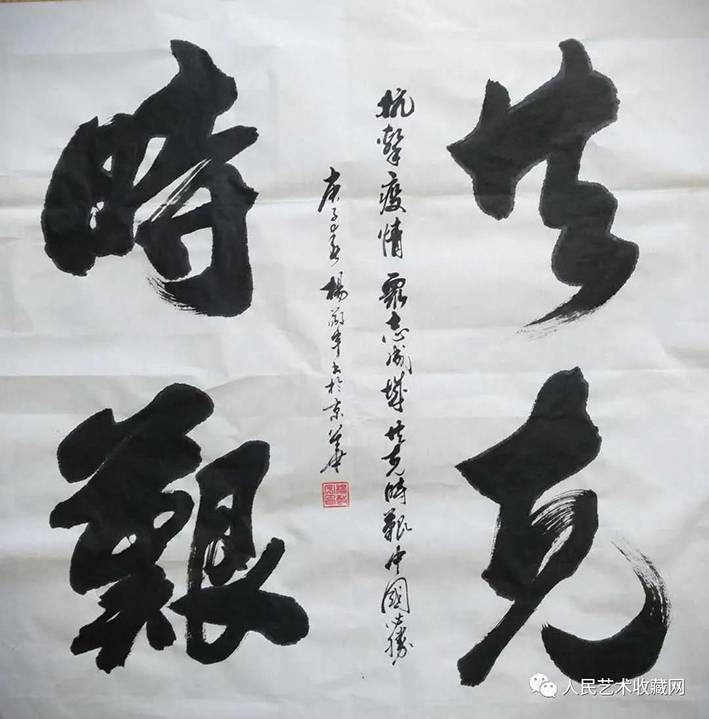 共克
時艱
抗擊疫情 眾志成城 共克時艱 中國必勝
庚子春 楊敬年書於京華
人民艺术收藏网